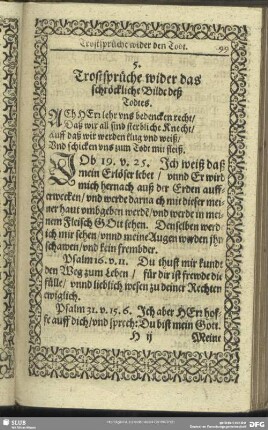 Trostsprüche wider den Todt. 99
5.
Trostsprüche wider das
schröckliche Bildt deß
Todtes.
ACh HErr lehr vns bedencken recht/
Daß wir all sind sterbliche Knecht/
auff daß wir werden klug vnd weiß/
Vnd schicken vns zum Todt mit fleiß.
JOb 19. v. 25. Jch weiß daß
mein Erlöser lebet/ vnnd Er wird
mich hernach auß der Erden auff-
erwecken/ vnd werde darnach mit dieser mei-
ner haut vmbgeben werdē/ vnd werde in mei-
nen Fleisch GOtt sehen. Denselben werd
ich mir sehen/ vnnd meine Augen werden jhn
schawen/ vnd kein frembder.
Psalm 16. v. 11. Du thust mir kundt
den Weg zum Leben/ für dir ist frewde die
fülle/ vnnd lieblich wesen zu deiner Rechten
ewiglich.
Psalm 31. v. 15. 6. Jch aber HErr hof-
fe auff dich/ vnd sprech: Du bist mein Gott.
H ij Meine
SLUB
DFG